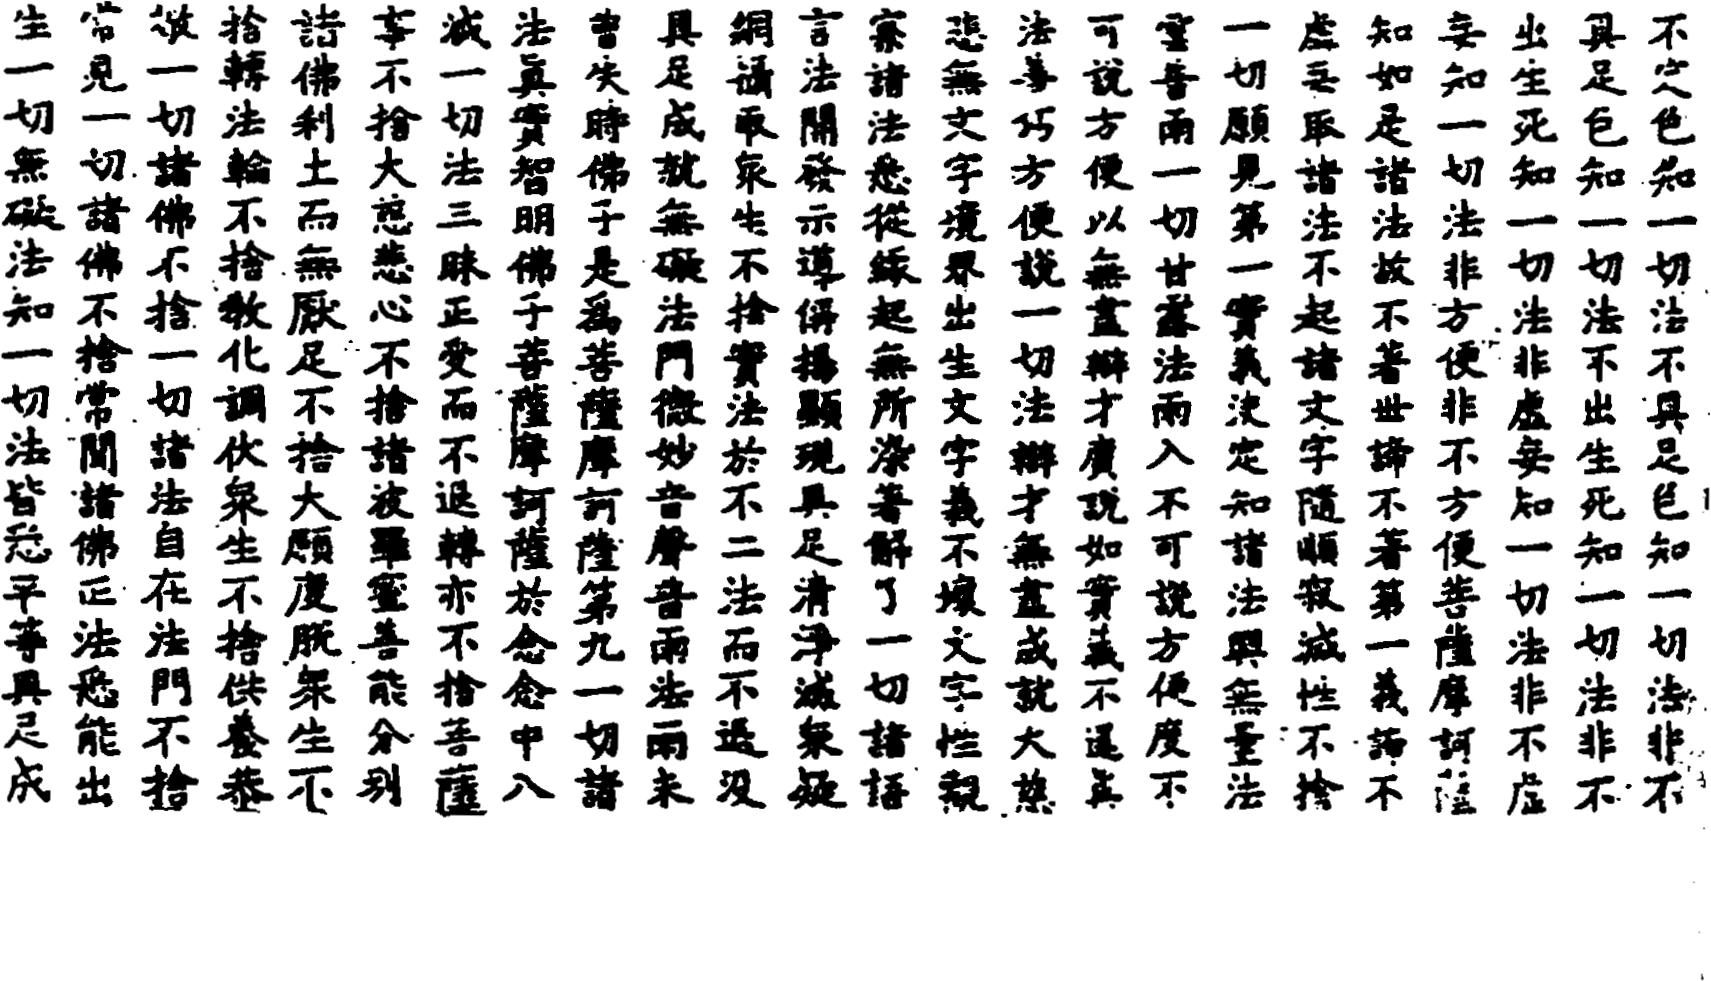 不定色知一切法不具足色知一切法非不
具足色知一切法不出生死知一切法非不
出生死知一切法非虛妄知一切法非不虛
妄知一切法非方便非不方便菩薩摩訶薩
知如是諸法故不著世諦不著第一義諦不
虛妄取諸法不起諸文字隨順寂滅性不捨
一切願見第一實義決定知諸法興無量法
雲普雨一切甘露法雨入不可說方便度不
可說方便以無盡辯才廣說如實義不違真
法善巧方便說一切法辯才無盡成就大慈
悲無文字境界出生文字義不壞文字性觀
察諸法悉從緣起無所染著解了一切諸語
言法開發示導佛揚顯現具足清淨滅眾疑
網攝取眾生不捨實法於不二法而不退没
具足成就無礙法門微妙音聲普雨法雨未
曾失時佛子是為菩薩摩訶薩第九一切諸
法真實智明佛子菩薩摩訶薩於念念中入
滅一切法三昧正受而不退轉亦不捨菩薩
事不捨大慈悲心不捨諸波羅蜜善能分别
諸佛刹土而無厭足不捨大願度脫眾生不
捨轉法輪不捨教化調伏眾生不捨供養恭
敬一切諸佛不捨一切諸法自在法門不捨
常見一切諸佛不捨常聞諸佛正法悉能出
生一切無礙法知一切法皆悉平等具足成